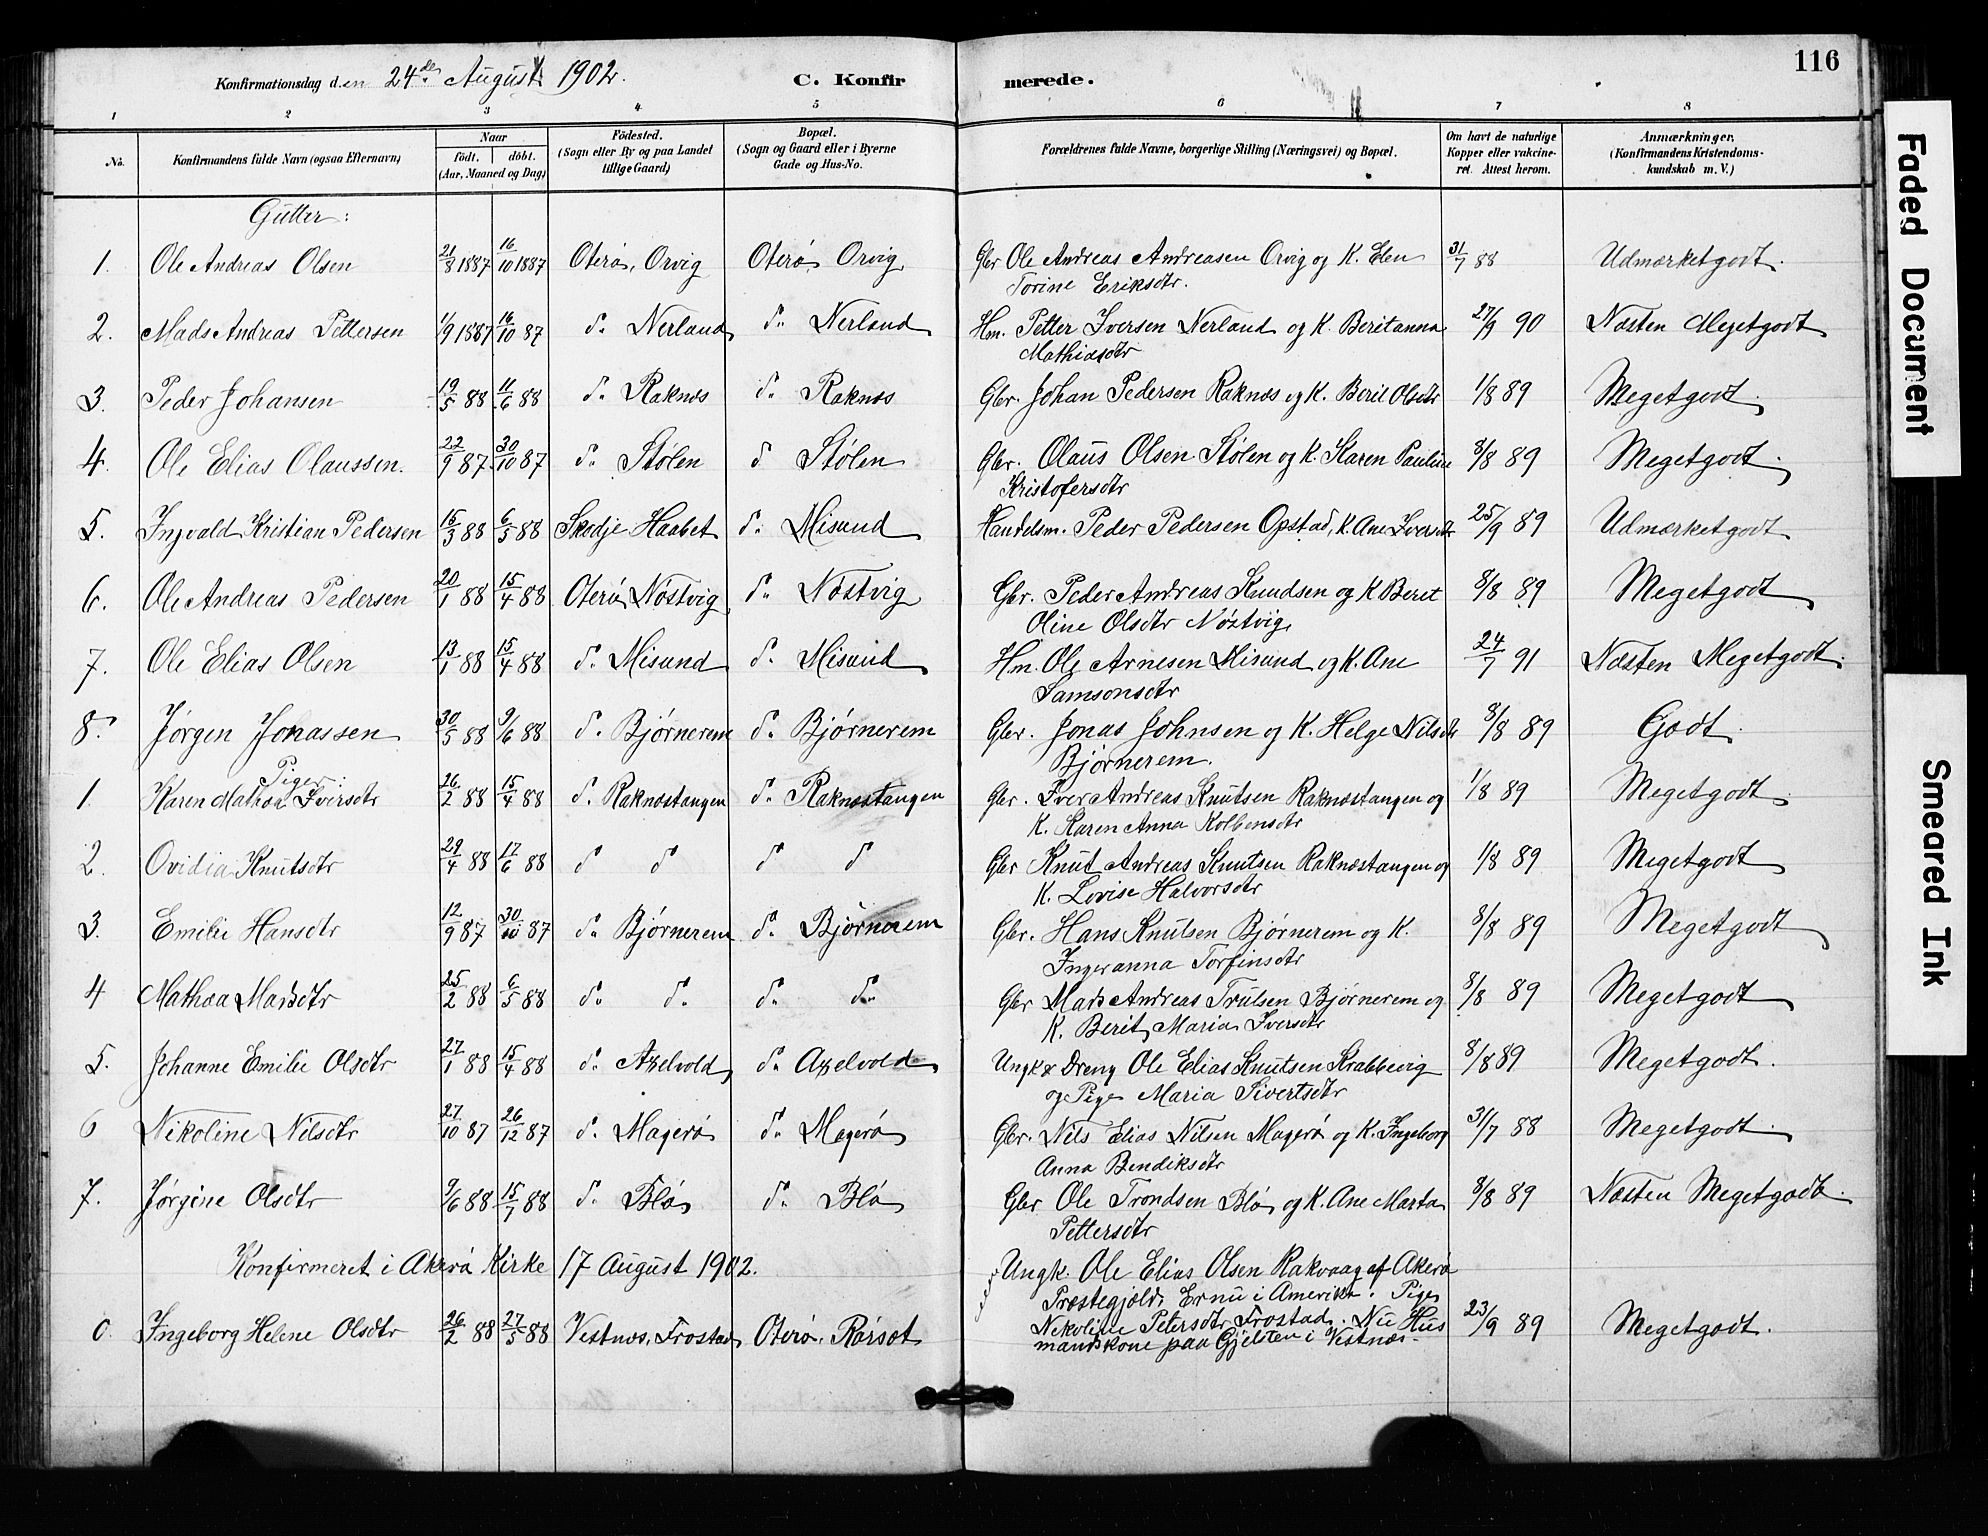 116
Konfirmationsdag den 24de August 1902.
C. Konfirmerede.
1 2 3 4 5 6 7 8
No.
Konfirmandens fulde Navn (ogsaa Efternavn)
Naar
födt. döbt.
(Aar, Maaned og Dag)
Födested.
(Sogn eller By og paa Landet
tillige Gaard)
Bopæl.
(Sogn og Gaard eller i Byerne
Gade og Hus-No.
Forældrenes fulde Navne, borgerlige Stilling (Næringsvei) og Bopæl.
Om havt de naturlige
Kopper eller vakcine-
ret. Attest herom.
Anmærkninger.
(Konfirmandens Kristendoms-
kundskab m. V.)
Gutter:
1. Ole Andreas Olsen 21/8 1887 16/10 1887 Oterø, Orvig Oterø, Orvig Gbr Ole Andreas Andreasen Orvig og K. Elen 31/7 88 Udmærketgodt.
Torine Eriksdtr.
2. Mads Andreas Pettersen 1/9 1887 16/10 87 d. Nerland d. Nerland Hm. Petter Iversen Nerland og K. Beritanna 27/9 90 Næsten Megetgodt
Mathiasdtr
3. Peder Johansen 19/5 88 11/6 88 d. Raknes d. Raknes Gbr. Johan Pedersen Raknes og K. Berit Olsdtr 1/8 89 Megetgodt.
4. Ole Elias Olaussen. 22/9 87 30/10 87 d. Stølen d Stølen Gbr. Olaus Olsen Stølen og K. Karen Pauline 8/8 89 Megetgodt.
Kristofersdtr
5. Ingvald Kristian Pedersen 15/3 88 6/5 88 Skodje Haabet d. Misund Handelsm. Peder Pedersen Opstad, K. Ane Iversdtr 25/9 89 Udmærketgodt
6. Ole Andreas Pedersen 20/1 88 15/4 88 Oterø, Nøstvig d. Nøstvig Gbr. Peder Andreas Knudsen og K Beret 8/8 89 Megetgodt
Oline Olsdtr Nøstvig
7. Ole Elias Olsen 13/1 88 15/4 88 d. Misund d. Misund Hm. Ole Arnesen Misund og K. Ane 24/7 91 Næsten Megetgodt.
Samsonsdtr
8. Jørgen Jonassen 30/5 88 9/6 88 d. Bjørnerem d. Bjørnerem Gbr. Jonas Johnsen og K. Helge Nilsdtr 8/8 89 Godt.
Bjørnerem.
Piger.
1. Karen Mathea Iversdtr 26/2 88 15/4 88 d. Raknestangen d. Raknestangen Gbr. Iver Andreas Knutsen Raknestangen og 1/8 89 Megetgodt
K. Karen Anna Kolbensdtr
2. Ovidia Knutsdtr 29/4 88 17/6 88 d d d d Gbr Knut Andreas Knutsen Raknestangen og 1/8 89 Megetgodt
K. Lovise Halvorsdtr
3. Emilie Hansdtr 12/9 87 30/10 87 d. Bjørnerem d. Bjørnerem Gbr. Hans Knutsen Bjørnerem og K. 8/8 89 Megetgodt
Ingeranna Torfinsdtr
4 Mathea Madsdtr 25/2 88 6/5 88 d. d. d. d. Gbr Mads Andreas Trulsen Bjørnerem og 8/8 89 Megetgodt
K. Berit Maria Iversdtr
5. Johanne Emilie Olsdtr 27/1 88 15/4 88 d. Axelvold d. Axelvold Ungk & Dreng Ole Elias Knutsen Krabbevig 8/8 89 Megetgodt.
og Pige Maria Sivertsdtr
6 Nikoline Nilsdtr 27/10 87 26/12 87 d. Magerø d. Magerø Gbr. Nils Elias Nilsen Magerø og K. Ingeborg 31/7 88 Megetgodt.
Anna Bendiksdtr
7. Jørgine Olsdtr 9/6 88 15/7 88 d. Blø d. Blø Gbr Ole Trondsen Blø og K. Ane Marta 8/8 89 Næsten Megetgodt.
Pettersdtr
Konfirmeret i Akerø Kirke 17 August 1902.
Ungk. Ole Elias Olsen Rakvaag af Akerø
Præstegjeld, Er nu i Amerika. Pige
0. Ingeborg Helene Olsdtr 26/2 88 27/5 88 Vestnes, Frostad Oterø. Rørset Nikoline Petersdtr Frostad. Nu Hus 23/9 89 Megetgodt.
mandskone paa Gjelsten i Vestnes.
Faded Document
Smeared Ink